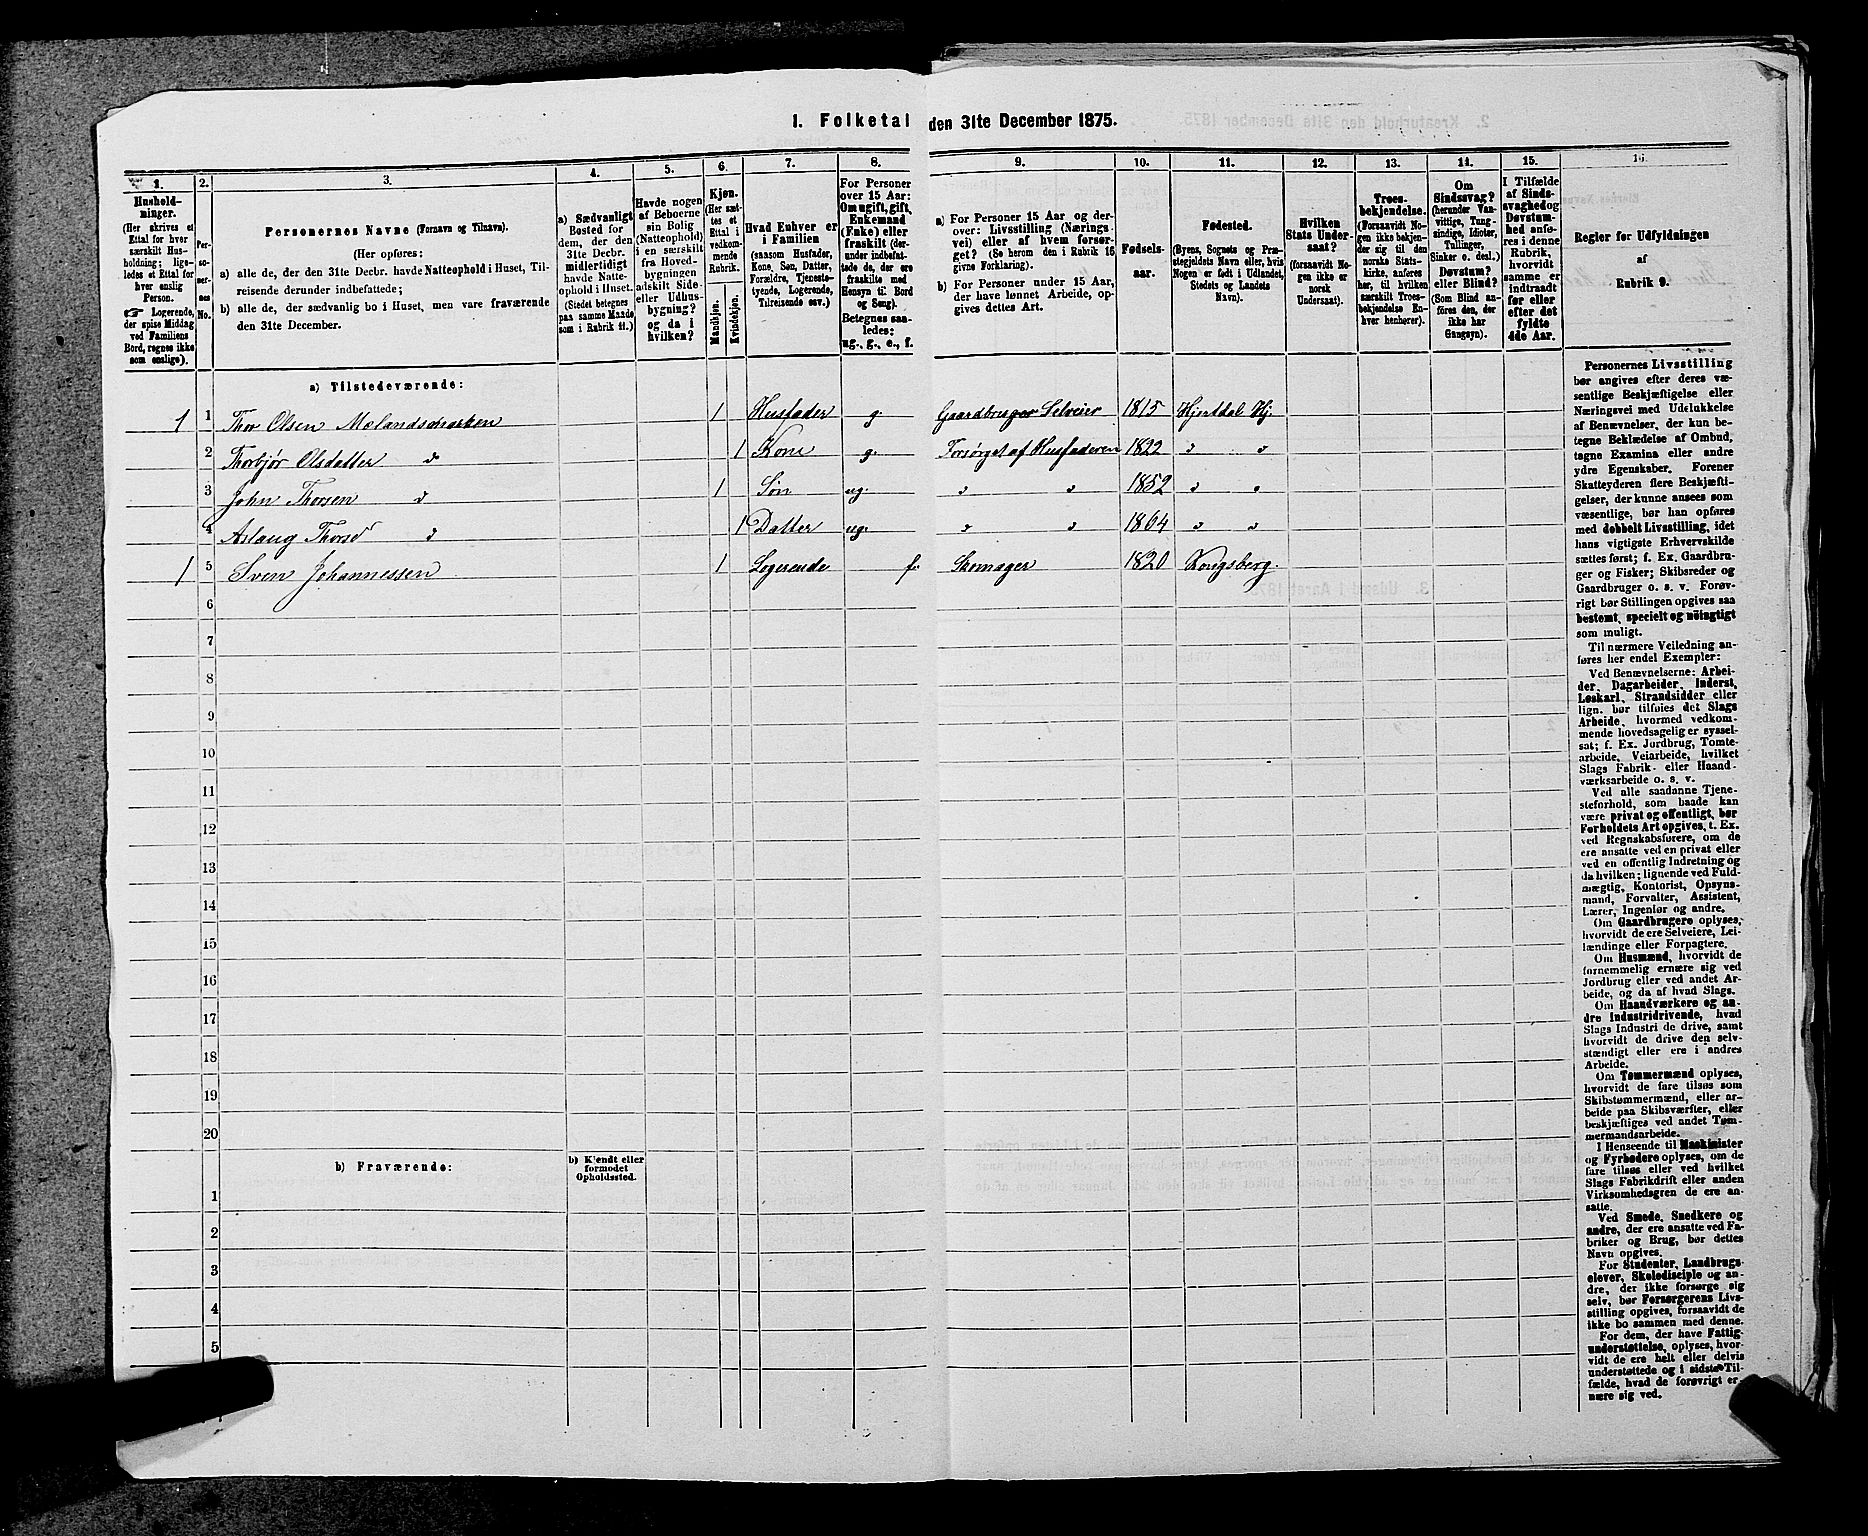 1. Folketal den 31te December 1875.
1. 2. 3. 4. 5. 6. 7. 8. 9. 10. 11. 12. 13. 14. 15. 16.
Husholdninger.
(Her skrives et
Ettal for hver
særskilt Hus-
holdning; lige-
ledes et Ettal for
hver enslig
Person.
☞ Logerende,
der spise Middag
ved Familiens
Bord, regnes ikke
som enslige).
Per-
so-
ner-
nes
No.
Personernes Navne (Fornavn og Tilnavn).
(Her opføres:
a) alle de, der den 31te Decbr. havde Natteophold i Huset, Til-
reisende derunder indbefattede;
b) alle de, der sædvanlig bo i Huset, men vare fraværende
den 31te December.
a) Sædvanligt
Bosted for
dem, der den
31te Decbr.
midlertidigt
havde Natte-
ophold i Huset.
(Stedet betegnes
paa samme Maade
som i Rubrik 11.)
Havde nogen
af Beboerne
sin Bolig
(Natteophold)
i en særskilt
fra Hoved-
bygningen
adskilt Side-
eller Udhus-
bygning?
og da i
hvilken?
Kjøn.
(Her sæt-
tes et
Ettal i
vedkom-
mende
Rubrik.
Mandkjøn.
Kvindekjøn.
Hvad Enhver er
i Familien
(saasom Husfader,
Kone, Søn, Datter,
Forældre, Tjeneste-
tyende, Logerende,
Tilreisende osv.)
For Personer
over 15 Aar:
Om ugift, gift,
Enkemand
(Enke) eller
fraskilt (der-
under indbefat-
tede de, der ere
fraskilte med
Hensyn til Bord
og Seng).
Betegnes saa-
ledes:
ug., g., e., f.
a) For Personer 15 Aar og der-
over: Livsstilling (Nærings-
vei) eller af hvem forsør-
get? (Se herom den i Rubrik 16
givne Forklaring).
b) For Personer under 15 Aar,
der have lønnet Arbeide, op-
gives dettes Art.
Fødsels-
aar.
Fødested.
(Byens, Sognets og Præ-
stegjeldets Navn eller, hvis
Nogen er født i Udlandet,
Stedets og Landets
Navn).
Hvilken
Stats Under-
saat?
(forsaavidt No-
gen ikke er
norsk
Undersaat).
Troes-
bekjendelse.
(Forsaavidt No-
gen ikke bekjen-
der sig til den
norske Stats-
kirke, anføres
her, til hvilken
særskilt Troes-
bekjendelse En-
hver henhører).
Om
Sindssvag?
(herunder Van-
vittige, Tung-
sindige, Idioter,
Tullinger,
Sinker o. desl.)
Døvstum?
eller Blind?
(Som Blind an-
føres den, der
ikke har
Gangsyn).
I Tilfælde
af Sinds-
svaghed og
Døvstum-
hed anfø-
res i denne
Rubrik,
hvorvidt
samme er
indtraadt
før eller
efter det
fyldte
4de Aar.
Regler før Udfyldningen
af
Rubrik 9.
a) Tilstedeværende:
1 1 Thor Olsen Mælandsmarken 1 Husfader g. Gaardbruger Selveier 1815 Hjertdal Hj.
2 Thorbjør Olsdatter " 1 Kone g. Forsørget af Husfaderen 1822 " "
3 John Thorsen " 1 Søn ug. " " 1852 " "
4 Aslaug Thorsd " 1 Datter ug. " " 1864 " "
1 5 Sven Johannessen 1 Logerende f. Skomager 1820 Kongsberg.
6
7
8
9
10
11
12
13
14
15
16
17
18
19
20
b) Fraværende:
b) Kjendt eller
formodet
Opholdssted.
1
2
3
4
5
Personernes Livsstilling
bør angives efter deres væ-
sentlige Beskjæftigelse eller
Næringsvei med Udelukkelse
af Benævnelser, der kun be-
tegne Beklædelse af Ombud,
tagne Examina eller andre
ydre Egenskaber. Forener
Skatteyderen flere Beskjæfti-
gelser, der kunne ansees som
væsentlige, bør han opføres
med dobbelt Livsstilling, idet
hans vigtigste Erhvervskilde
sættes først; f. Ex. Gaardbru-
ger og Fisker; Skibsreder og
Gaardbruger o. s. v. Forøv-
rigt bør Stillingen opgives saa
bestemt, specielt og nøiagtigt
som muligt.
Til nærmere Veiledning an-
føres her endel Exempler:
Ved Benævnelserne: Arbei-
der, Dagarbeider, Inderst,
Løskarl, Strandsidder eller
lign. bør tilføies det Slags
Arbeide, hvormed vedkom-
mende hovedsagelig er syssel-
sat; f. Ex. Jordbrug, Tomte-
arbeide, Veiarbeide, hvilket
Slags Fabrik- eller Haand-
værksarbeide o. s. v.
Ved alle saadanne Tjene-
steforhold, som baade kan
være privat og offentligt, bør
Forholdets Art opgives, t. Ex.
ved Regnskabsførere, om de
ere ansatte ved en privat eller
ved en offentlig Indretning og
da hvilken; lignende ved Fuld-
mægtig, Kontorist, Opsyns-
mand, Forvalter, Assistent,
Lærer, Ingeniør og andre.
Om Gaardbrugere oplyses,
hvorvidt de ere Selveiere, Lei-
lændinge eller Forpagtere.
Om Husmænd, hvorvidt de
fornemmelig ernære sig ved
Jordbrug eller ved andet Ar-
beide, og da af hvad Slags.
Om Haandværkere og an-
dre Industridrivende, hvad
Slags Industri de drive, samt
hvorvidt de drive den selv-
stændigt eller ere i andres
Arbeide.
Om Tømmermænd oplyses,
hvorvidt de fare tilsøs som
Skibstømmermænd, eller ar-
beide paa Skibsværfter, eller
beskjæftiges ved andet Tøm-
mermandsarbeide.
I Henseende til Maskinister
og Fyrbødere oplyses, om de
fare tilsøs eller ved hvilket
Slags Fabrikdrift eller anden
Virksomhedsgren de ere an-
satte.
Ved Smede, Snedkere og
andre, der ere ansatte ved Fa-
briker og Brug, bør dettes
Navn opgives.
For Studenter, Landbrugs-
elever, Skoledisciple og an-
dre, der ikke forsørge sig
selv, bør Forsørgerens Livs-
stilling opgives, forsaavidt de
ikke bo sammen med denne.
For dem, der have Fattig-
understøttelse, oplyses, hvor-
vidt de ere helt eller delvis
understøttede og i sidste Til-
fælde, hvad de forøvrigt er-
nære sig ved.